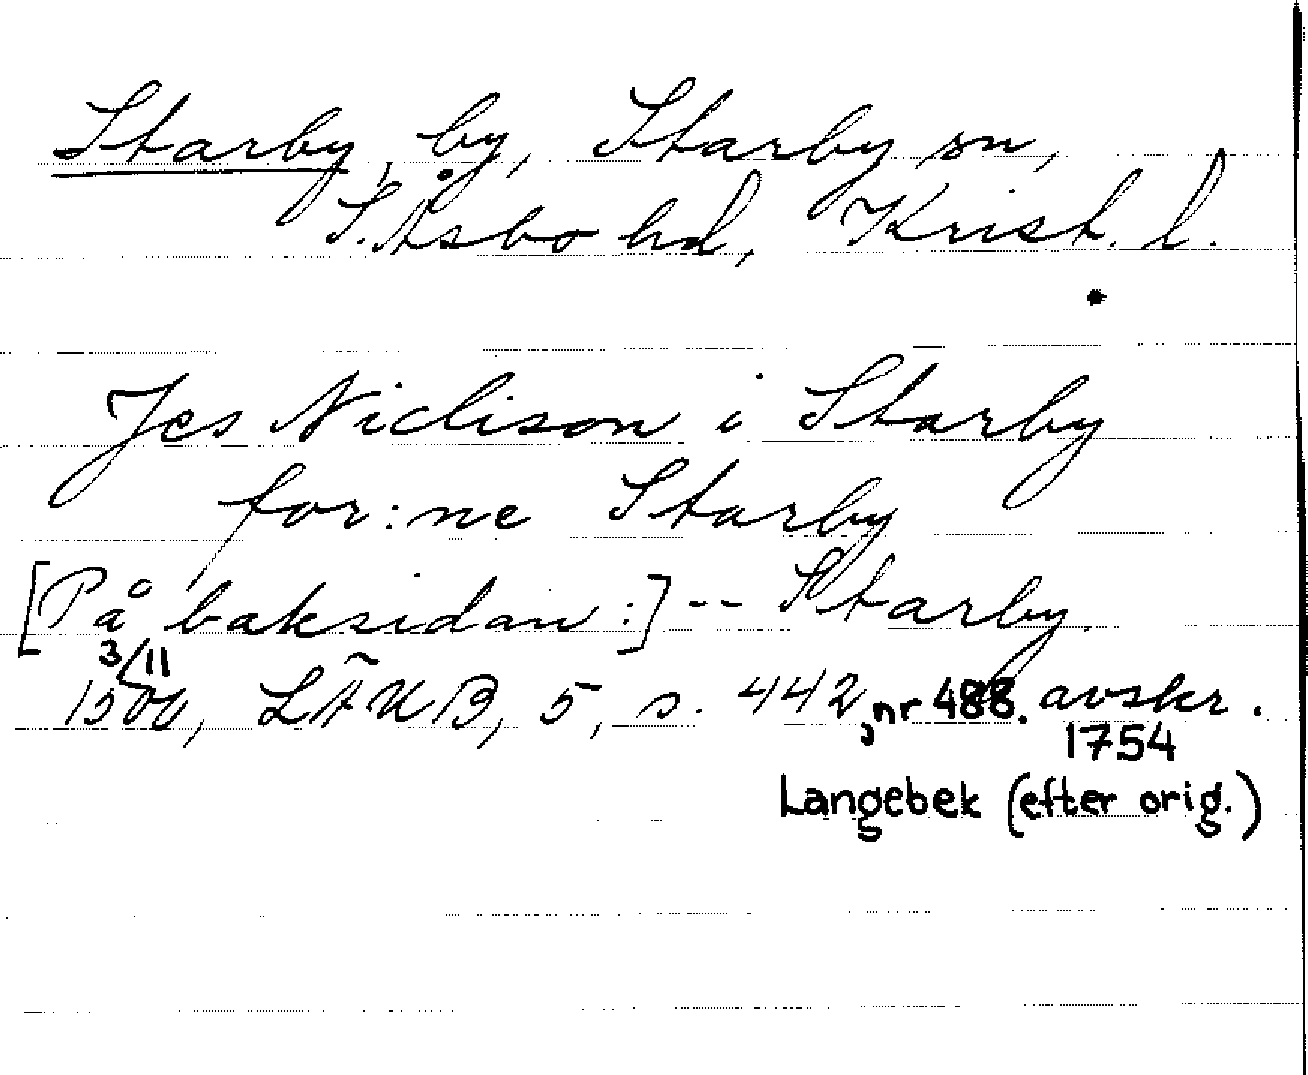 Starby, by, Starby sn,
S. Åsbo hd, Krist. l.
Jes Niclison i Starby
for:ne Starby
[På baksidan:] -- Starby.
3/11
1500, LÄUB, 5, s. 442, nr 488. avskr.
1754
Langebek (efter orig.)